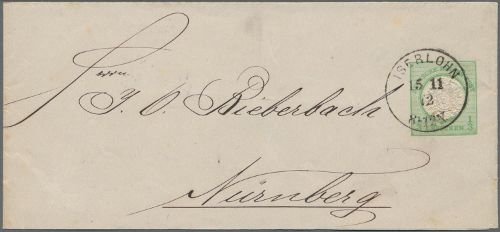 Herrn
J. O. Bieberbach
Nürnberg
ISERLOHN
15 11
72
1/3